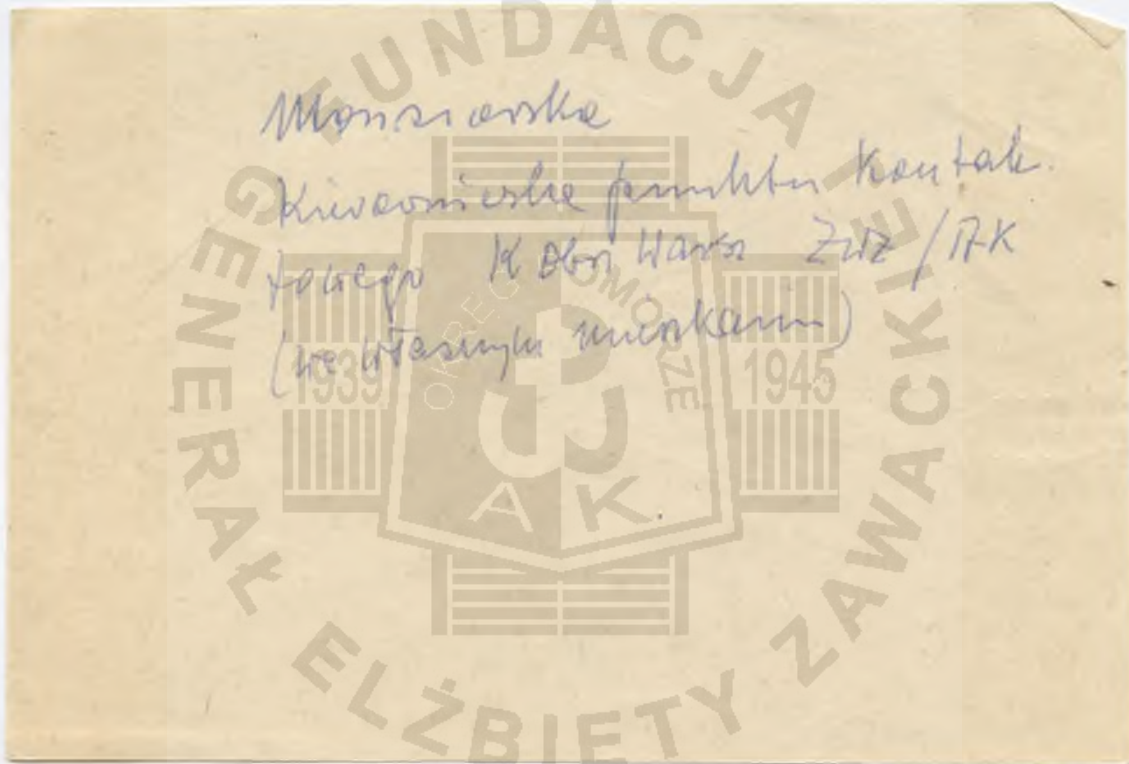 Kierowniczka punktu kontak.
towego K Obr Warsz ZWZ/AK
(we własnym mieszkaniu)
FUNDACJA GENERAŁ ELŻBIETY ZAWACKIEJ
OKRĘG POMORZE
1939
1945
AK